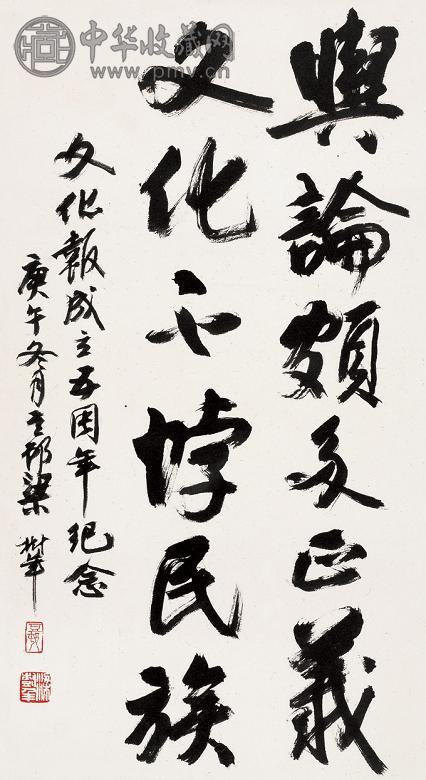 輿論頗多正義
文化不悖民族
文化報成立五周年紀念
庚午冬月臺郡梁
中华收藏网
www.pmv.cn